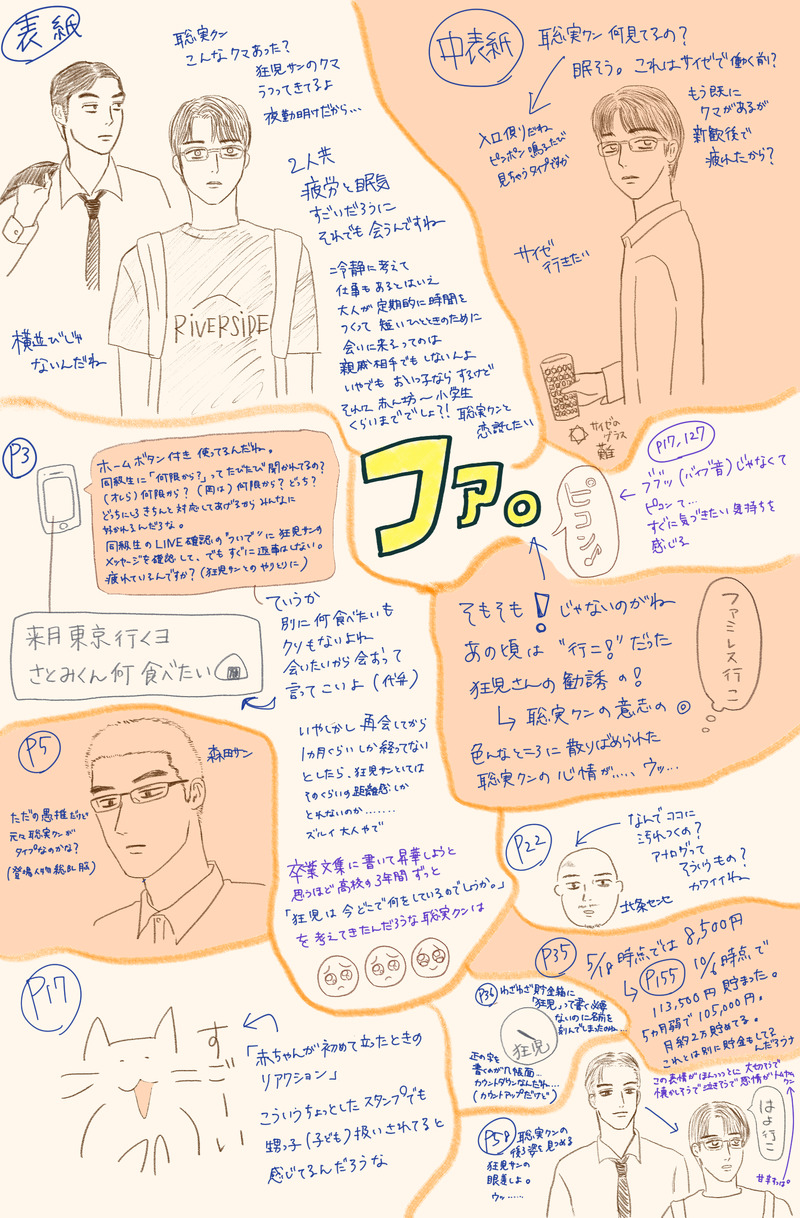 表紙
聡実クン
こんなクマあった?
狂児サンのクマ
うつってきてるよ
夜勤明けだから…
2人共
疲労と眠気
すごいだろうに
それでも会うんですね
冷静に考えて
仕事もあるとはいえ
大人が定期的に時間を
つくって 短いひとときのために
会いに来るってのは
親戚相手でもしないんよ
いやでも おいっ子なら するけど
それは 赤ん坊〜小学生
くらいまででしょ?! 聡実クンと
恋話したい
RiVERSiDE
横並びじゃ
ないんだね
中表紙
聡実クン 何見てるの?
眠そう。これはサイゼで働く前?
もう既に
クマがあるが
新歓後で
疲れたから?
入口側だね
ピンポン鳴るたび
見ちゃうタイプですか
サイゼ
行きたい
サイゼの
グラス
難
P3
ホームボタン付き 使ってるんだね。
同級生に「何限から?」ってたびたび聞かれてるの?
(オレら)何限から? (雨は)何限から? どっち?
どっちにしろきちんと対応してあげるから みんなに
好かれるんだろな。
同級生のLINE確認の"ついで"に 狂児サンの
メッセージを確認して、でもすぐに返事はしない。
疲れているんですか? (狂児サンとのやりとりに)
来月東京行くヨ
さとみくん何食べたい
ていうか
別に何食べたいも
クソもないよね
会いたいから会おって
言ってこいよ (代弁)
いやしかし 再会してから
1ヵ月くらいしか経ってない
としたら、狂児サンとしては
そのくらいの距離感しか
とれないのか………
ズルイ大人やで
ファ。
P17,127
ブブッ (バイブ音)じゃなくて
ピコンて…
すぐに気づきたい気持ちを
感じる
ピコン♪
そもそも ! じゃないのがね
あの頃は "行こ!" だった
狂児さんの勧誘の!
↳ 聡実クンの意志の 。
色んなところに散りばめられた
聡実クンの心情が…、ウッ…
ファミレス行こ
P5
森田サン
ただの愚推だけど
元々聡実クンが
タイプなのかな?
(登場人物総乱脳)
卒業文集に書いて昇華しようと
思うほど高校の3年間ずっと
「狂児は今どこで何をしているのでしょうか。」
を考えてきたんだろうな 聡実クンは
P22
なんでココに
汚れつくの?
アナログって
そういうもの?
カワイイね
北条センセ
P35
5/18 時点では 8,500円
↳ P155 10/6 時点で
113,500円 貯まった。
5ヵ月弱で105,000円。
月約2万貯めてる。
これとは別に貯金もしてる
んだろうナ
P36
わざわざ貯金箱に
「狂児」って書く必要
ないのに名前を
刻んでしまったのね…
狂児
正の字を
書くのが几帳面…
カウントダウンなんだね…
(カウントアップだけど)
P17
すごーい
「赤ちゃんが初めて立ったときの
リアクション」
こういうちょっとしたスタンプでも
甥っ子(子ども)扱いされてると
感じてるんだろうな
P58
聡実クンの
後ろ姿を見つめる
狂児サンの
眼差しよ。
ウッ……
この表情がほんっっっとに 大切そうで
懐かしそうで泣きそうで感情がトムヤム
クン
はよ行こ
甘辛すっぱ。